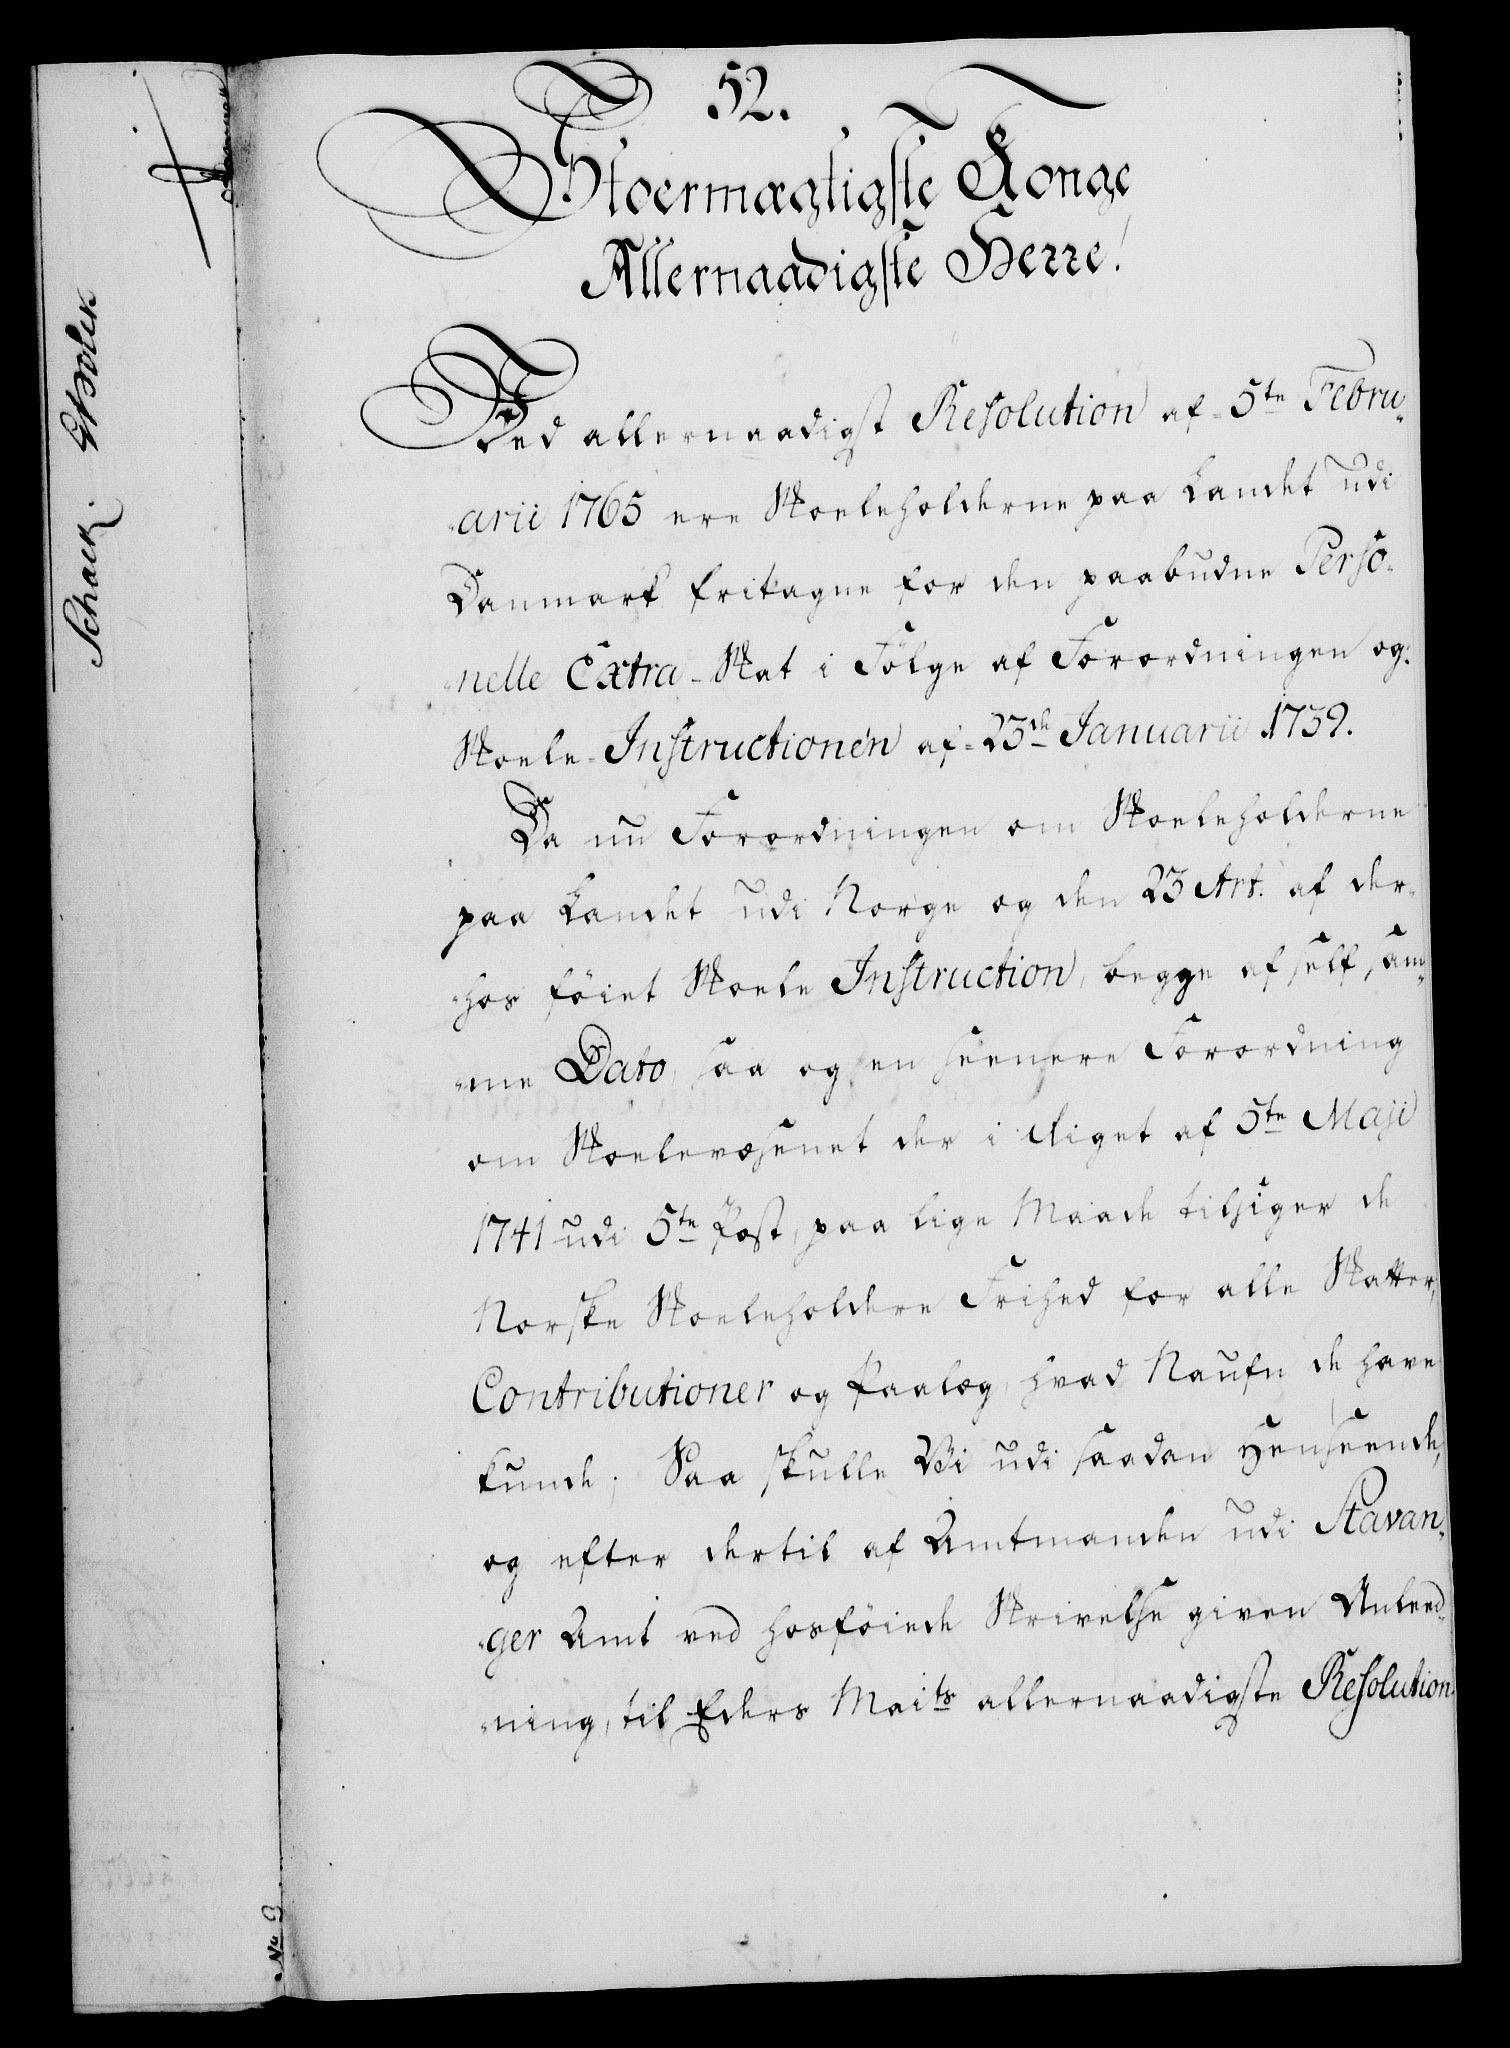 52.
Stoermægtigste Konge
Allernaadigste Herre!
Ved allernaadigst Resolution af 5te Febru-
-arii 1765 ere Skoeleholderne paa Landet udi
Danmark fritagne for den paabudne Perso-
-nelle Extra-Skat i Følge af Forordningen og
Skoele-Instructionen af 23de Januarii 1739.
Da nu Forordningen om Skoeleholderne
paa Landet udi Norge og den 23 Art. af der-
-hos föiet Skoele Instruction, begge af self sam-
-me Dato, saa og en seenere Forordning
om Skoelevæsenet der i Riget af 5te Maji
1741 udi 5te Post, paa lige Maade tilsiger de
Norske Skoeleholdere Frihed for alle Skatter,
Contributioner og Paalæg, hvad Naufn de have
kunde; Saa skulle Vi udi saadan Henseende,
og efter dertil af Amtmanden udi Stavan-
-ger Amt ved hosföiede Skrivelse given Anleed-
-ning, til Eders Maits allernaadigste Resolution
Schack.
No 9